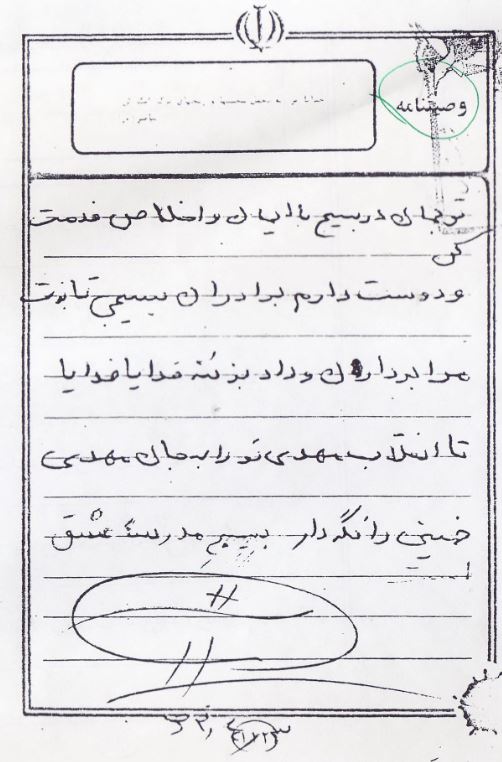 وصیتنامه
توجهان در بسیج با ایمان و اخلاص خدمت
کن
و دوست دارم برادران بسیجی تابوت
مرا بردارن و داد بزنند خدایا خدایا
تا انقلاب مهدی تو را به جان مهدی
خمینی را نگه دار بسیج مدرسه عشق
است